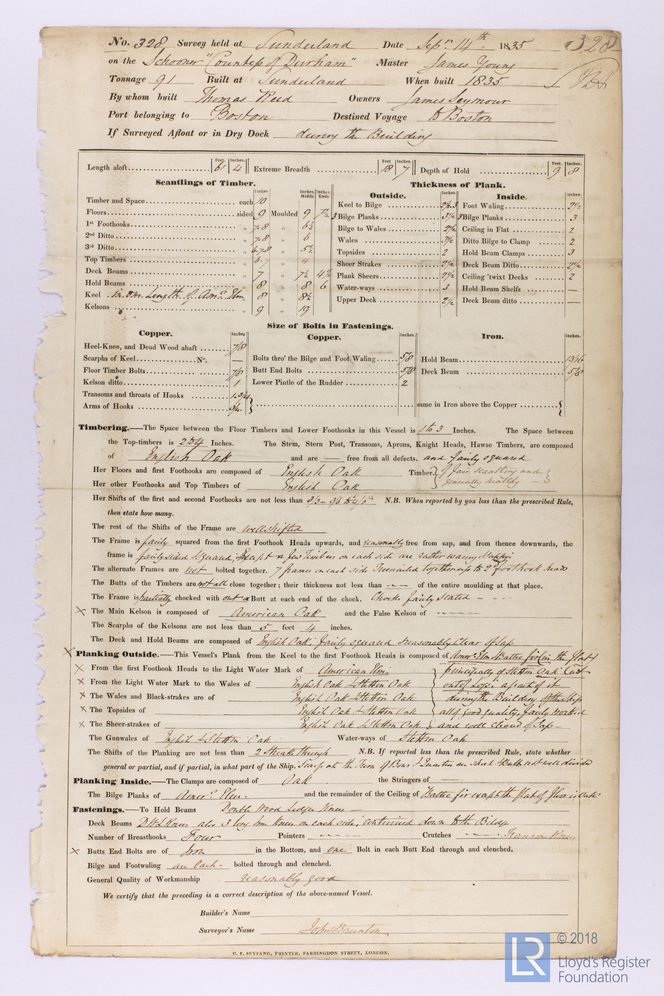 No. 328 Survey held at Sunderland Date Sepr. 14th 1835 328
on the Schooner "Countess of Durham" Master James Young
Tonnage 91 Built at Sunderland When built 1835
By whom built Thomas Reed Owners James Seymour
Port belonging to Boston Destined Voyage to Boston
If Surveyed Afloat or in Dry Dock during the Building
Feet. Inches. Feet Inches. Feet. Inches.
Length aloft 61 4 Extreme Breadth 18 7 Depth of Hold 9 8
Scantlings of Timber. Thickness of Plank.
Outside. Inside.
Timber and Space each 10
Floors sided 9 Moulded 9
1st Foothooks 7.8 " 6½
2nd Ditto 7.8 " 6
3rd Ditto " 5½
Top Timbers " 4
Deck Beams 7 " 7½
Hold Beams 8 " 8 6
Keel 8 " 8½
Kelsons 9 " 19
Keel to Bilge
Bilge Planks
Bilge to Wales
Wales
Topsides 2
Sheer Strakes 2½
Plank Sheers 2½
Water-ways 3
Upper Deck 2½
Foot Waling
Bilge Planks 3
Ceiling in Flat 2
Ditto Bilge to Clamp 2
Hold Beam Clamps 3
Deck Beam Ditto 2½
Ceiling 'twixt Decks 2
Hold Beam Shelfs —
Deck Beam ditto —
Size of Bolts in Fastenings.
Copper. Copper. Iron.
Heel-Knee, and Dead Wood abaft 7/8
Scarphs of Keel No. —
Floor Timber Bolts 7/8
Kelson ditto 1
Transoms and throats of Hooks
Arms of Hooks
Bolts thro' the Bilge and Foot Waling 5/8
Butt End Bolts 5/8
Lower Pintle of the Rudder 2
Hold Beam 13/16
Deck Beam 5/8
same in Iron above the Copper
Timbering.—The Space between the Floor Timbers and Lower Foothooks in this Vessel is 1 to 3 Inches. The Space between
the Top-timbers is 2 to 4 Inches. The Stem, Stern Post, Transoms, Aprons, Knight Heads, Hawse Timbers, are composed
of English Oak and are — free from all defects. and fairly squared
Her Floors and first Foothooks are composed of English Oak Timber
Her other Foothooks and Top Timbers of English Oak
Her Shifts of the first and second Foothooks are not less than N.B. When reported by you less than the prescribed Rule,
then state how many.
The rest of the Shifts of the Frame are well shifted
The Frame is fairly squared from the first Foothook Heads upwards, and reasonably free from sap, and from thence downwards, the
frame is fairly sided & squared, except a few Timbers on each side are rather waney
The alternate Frames are not bolted together. 7 frames on each side together up to 2 foothook heads
The Butts of the Timbers are not all close together; their thickness not less than ---- of the entire moulding at that place.
The Frame is partially chocked with out a Butt at each end of the chock. Chocks fairly
The Main Kelson is composed of American Oak and the False Kelson of ----
The Scarphs of the Kelsons are not less than 5 feet 4 inches.
The Deck and Hold Beams are composed of English Oak, fairly squared & reasonably clear of sap
Planking Outside.—This Vessel's Plank from the Keel to the first Foothook Heads is composed of
From the first Foothook Heads to the Light Water Mark of American Elm
From the Light Water Mark to the Wales of English Oak & Stettin Oak
The Wales and Black-strakes are of English Oak & Stettin Oak
The Topsides of English Oak & Stettin Oak
The Sheer-strakes of English Oak & Stettin Oak
during the Building of the ship
all of good quality, fairly worked
and well cleared of Sap
The Gunwales of English & Stettin Oak. Water-ways of Stettin Oak
The Shifts of the Planking are not less than 2 Strake through N.B. If reported less than the prescribed Rule, state whether
general or partial, and if partial, in what part of the Ship.
Planking Inside.—The Clamps are composed of Oak the Stringers of —
The Bilge Planks of Amern. Elm and the remainder of the Ceiling of
Fastenings.—To Hold Beams Double Wood Lodge Knees
Deck Beams also 3 Iron Knees on each side, continued down to the Bilge
Number of Breasthooks Four Pointers ---- Crutches ---- Transom Knees
Butts End Bolts are of Iron in the Bottom, and one Bolt in each Butt End through and clenched.
Bilge and Footwaling in each bolted through and clenched.
General Quality of Workmanship reasonably good
We certify that the preceding is a correct description of the above-named Vessel.
Builder's Name
Surveyor's Name John Brunton
C. F. SEYFANG, PRINTER, FARRINGDON STREET, LONDON.
LR © 2018
Lloyd's Register
Foundation